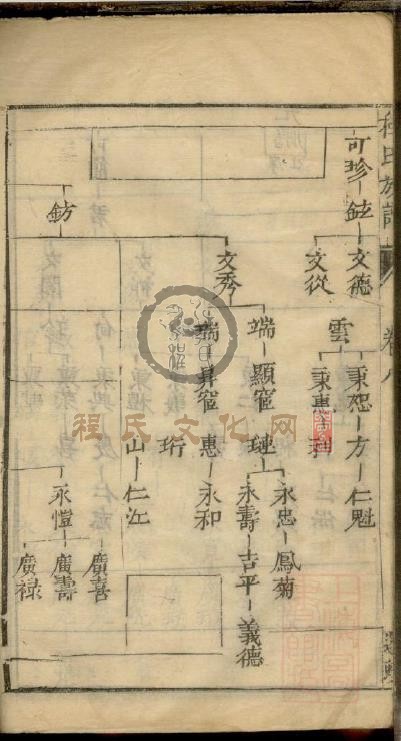 程氏族譜
卷八
可珍
鉉
文德
文從
雲
秉恕
方
仁魁
秉惠
利
文秀
端
顯宦
璉
永忠
鳳菊
永壽
吉平
義德
瑞
昇宦
惠
永和
珩
山
仁江
鈁
永愷
廣喜
廣壽
廣祿
程氏文化网